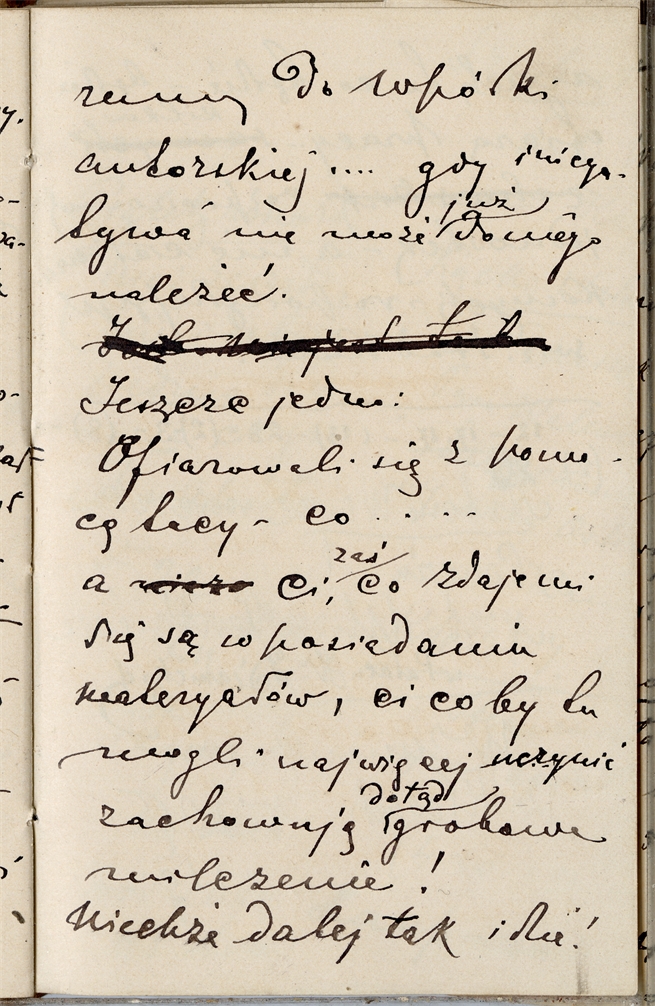 Do wpółki
autorskiej .... gdy inicya-
tywa nie może już do niego
należeć.
Jeszcze jedno:
Ofiarowali się z pomo-
cą tacy - co . . . .
a ci, zaś co zdaje mi
się są w posiadaniu
materyałów, ci co by tu
mogli najwięcej uczynić
zachowują dotąd grobowe
milczenie!
Niechże dalej tak idzie!